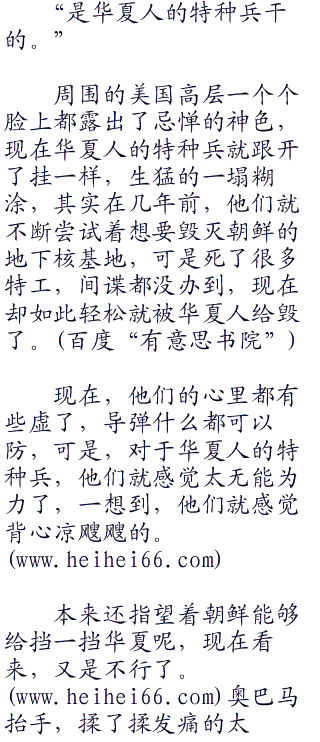 “是华夏人的特种兵干
的。”
周围的美国高层一个个
脸上都露出了忌惮的神色，
现在华夏人的特种兵就跟开
了挂一样，生猛的一塌糊
涂，其实在几年前，他们就
不断尝试着想要毁灭朝鲜的
地下核基地，可是死了很多
特工，间谍都没办到，现在
却如此轻松就被华夏人给毁
了。(百度“有意思书院”)
现在，他们的心里都有
些虚了，导弹什么都可以
防，可是，对于华夏人的特
种兵，他们就感觉太无能为
力了，一想到，他们就感觉
背心凉飕飕的。
(www.heihei66.com)
本来还指望着朝鲜能够
给挡一挡华夏呢，现在看
来，又是不行了。
(www.heihei66.com)奥巴马
抬手，揉了揉发痛的太